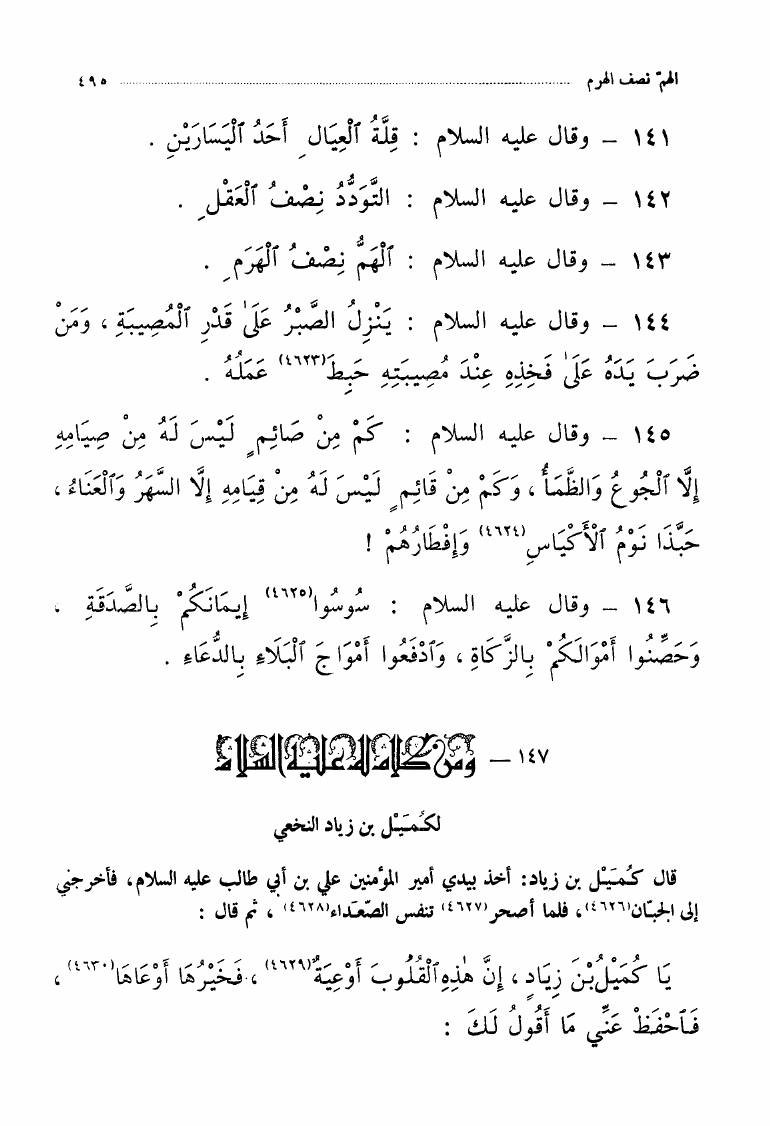 الهمّ نصف الهرم ٤٩٥
١٤١ – وقال عليه السلام : قِلَّةُ ٱلْعِيَالِ أَحَدُ ٱلْيَسَارَيْنِ .
١٤٢ – وقال عليه السلام : التَّوَدُّدُ نِصْفُ ٱلْعَقْلِ .
١٤٣ – وقال عليه السلام : ٱلْهَمُّ نِصْفُ ٱلْهَرَمِ .
١٤٤ – وقال عليه السلام : يَنْزِلُ الصَّبْرُ عَلَىٰ قَدْرِ ٱلْمُصِيبَةِ ، وَمَنْ
ضَرَبَ يَدَهُ عَلَىٰ فَخِذِهِ عِنْدَ مُصِيبَتِهِ حَبِطَ(٤٦٢٣) عَمَلُهُ .
١٤٥ – وقال عليه السلام : كَمْ مِنْ صَائِمٍ لَيْسَ لَهُ مِنْ صِيَامِهِ
إِلَّا ٱلْجُوعُ وَالظَّمَأُ ، وَكَمْ مِنْ قَائِمٍ لَيْسَ لَهُ مِنْ قِيَامِهِ إِلَّا السَّهَرُ وَٱلْعَنَاءُ ،
حَبَّذَا نَوْمُ ٱلْأَكْيَاسِ(٤٦٢٤) وَإِفْطَارُهُمْ !
١٤٦ – وقال عليه السلام : سُوسُوا(٤٦٢٥) إِيمَانَكُمْ بِالصَّدَقَةِ ،
وَحَصِّنُوا أَمْوَالَكُمْ بِالزَّكَاةِ ، وَٱدْفَعُوا أَمْوَاجَ ٱلْبَلَاءِ بِالدُّعَاءِ .
١٤٧ – ومن كلام له عليه السلام
لكُمَيْل بن زياد النخعي
قال كُمَيْل بن زياد: أخذ بيدي أمير المؤمنين علي بن أبي طالب عليه السلام، فأخرجني
إلى الجبّان(٤٦٢٦)، فلما أصحر(٤٦٢٧) تنفس الصّعَداء(٤٦٢٨) ، ثم قال :
يَا كُمَيْلُ بْنَ زِيَادٍ ، إِنَّ هٰذِهِ ٱلْقُلُوبَ أَوْعِيَةٌ(٤٦٢٩) ، فَخَيْرُهَا أَوْعَاهَا(٤٦٣٠) ،
فَٱحْفَظْ عَنِّي مَا أَقُولُ لَكَ :